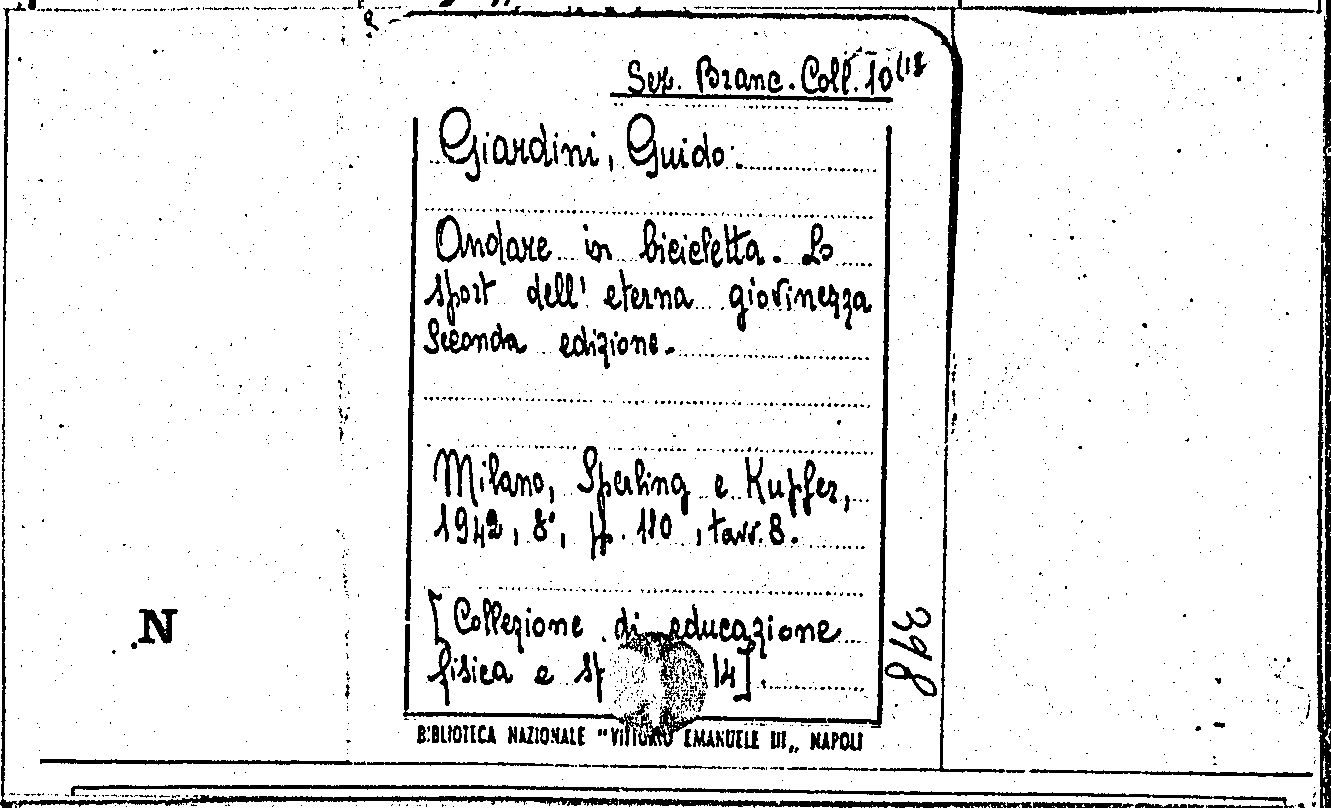 Sez. Branc. Coll. 10(18
Giardini, Guido.
Andare in bicicletta. Lo
sport dell' eterna giovinezza
Seconda edizione.
Milano, Sperling e Kupfer,
1942, 8°, pp. 110, tavv. 8.
[Collezione di educazione
fisica e sp 14].
398
N
BIBLIOTECA NAZIONALE "VITTORIO EMANUELE III„ NAPOLI